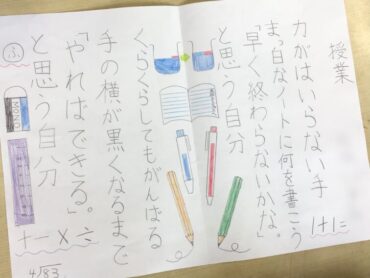 授業
力がはいらない手
まっ白なノートに何を書こう
「早く終わらないかな」
と思う自分
くらくらしてもがんばる
手の横が黒くなるまで
「やればできる。」
と思う自分
1+1=
MONO
+−×÷